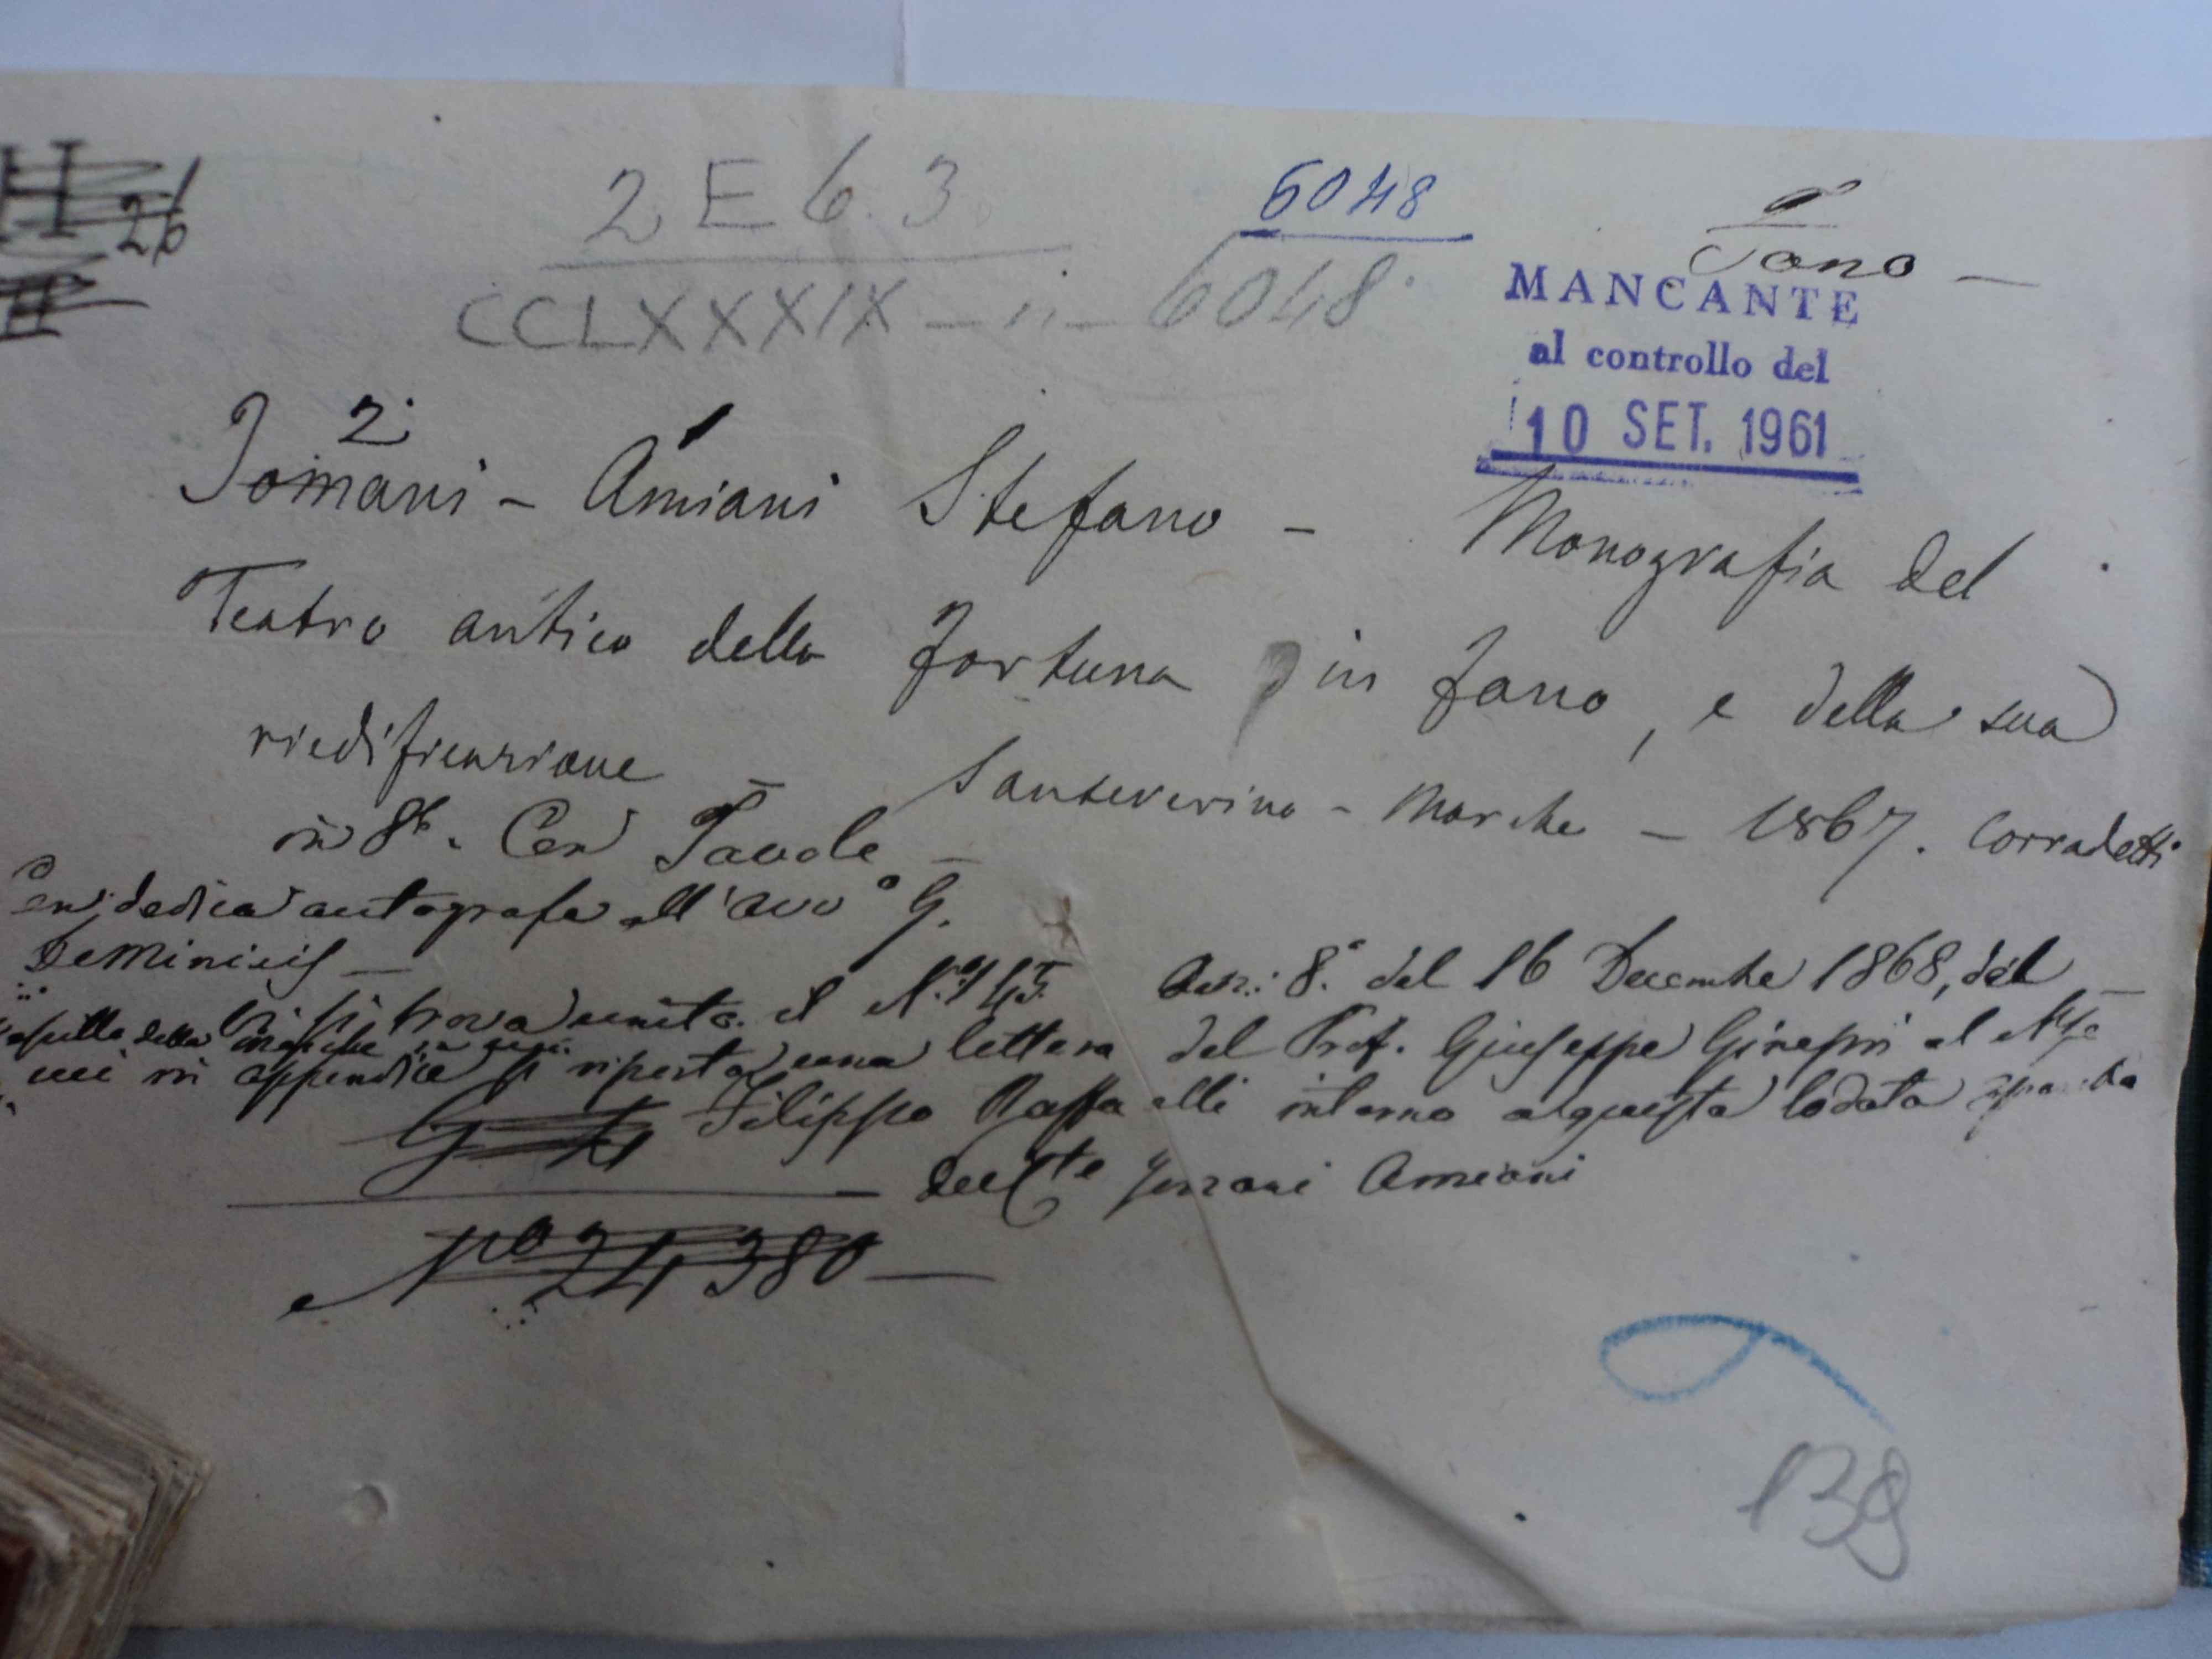 26
2 E 6. 3.
6048
Fano —
CCLXXXIX — n — 6048.
MANCANTE
al controllo del
10 SET. 1961
2 1
Tomani - Amiani Stefano - Monografia del
Teatro antico della Fortuna in Fano, e della sua
riedificazione — Sanseverino - Marche — 1867. Corradetti
in 8º. Con Tavole —
Con dedica autografa all'Avvº G.
DeMinicis —
Vi si trova unito il N.º 145. Anº: 8.º del 16 Decembre 1868, del —
della Marche
cui in appendice si riporta una lettera del Prof. Giuseppe Ginepri al
Filippo Raffaelli intorno a questa lodata
del Cte Tomani Amiani
Nº 24,380 —
139